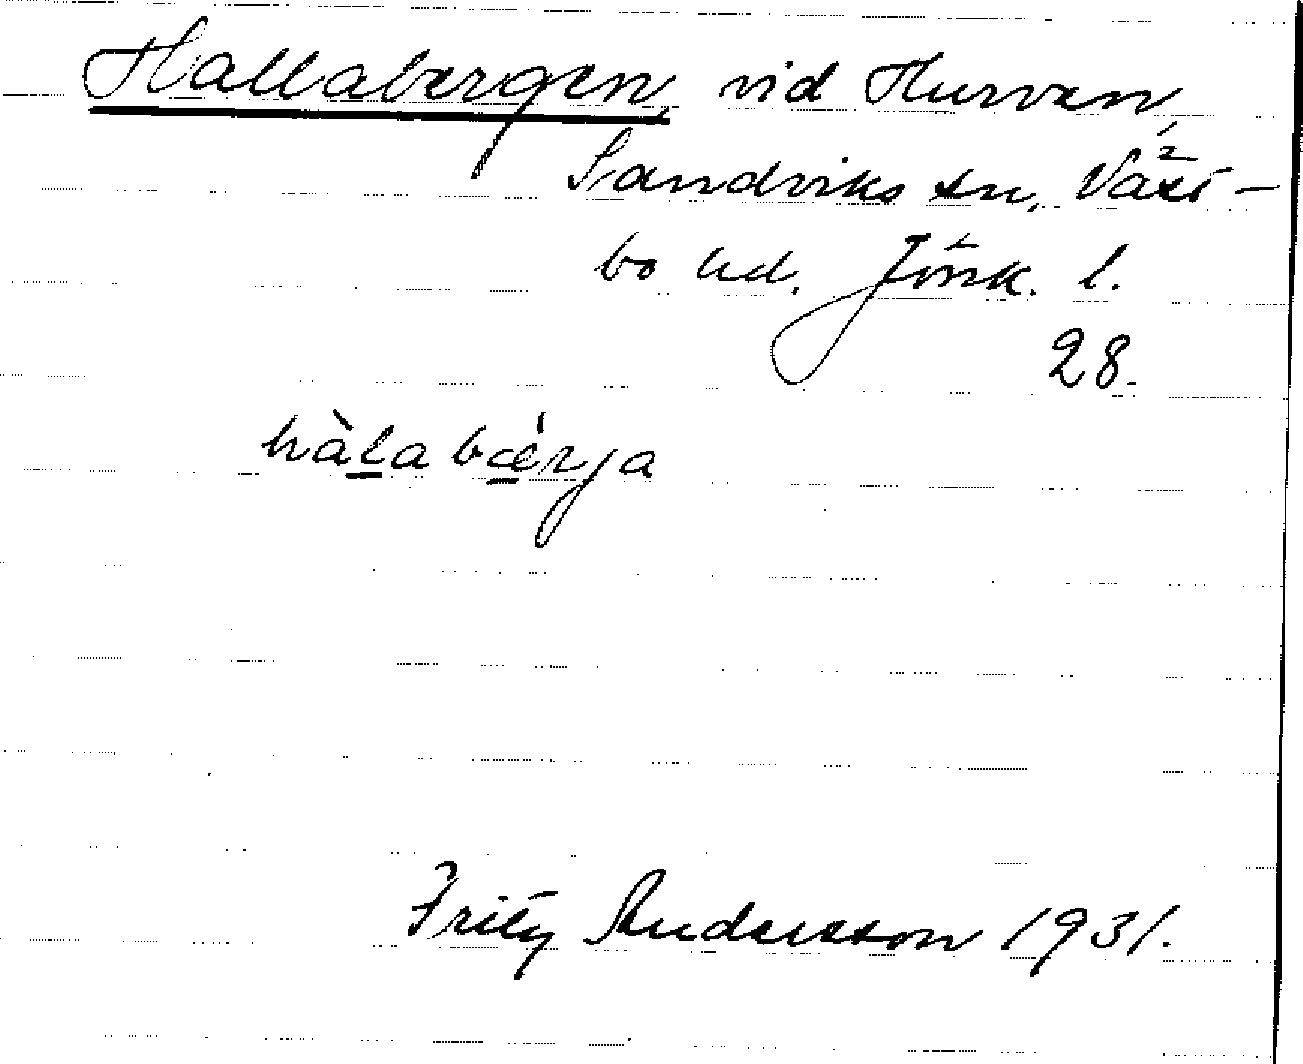 Hallabergen, vid Hurven,
Sandviks sn, Väst-
bo hd. Jönk. l.
28.
hàlabǽrja
Fritz Andersson 1931.